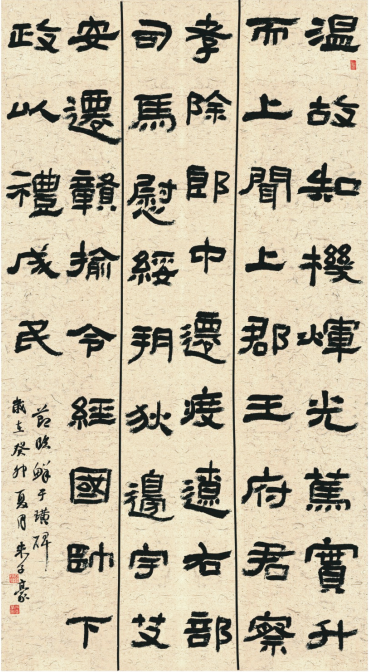 溫故知機煇光篤實升
而上聞上郡王府君察
孝除郎中遷度遼右部
司馬慰綏朔狄邊宇艾
安遷贛揄令經國帥下
政以禮成民
節臨鮮于璜碑
歲在癸卯夏月朱子豪